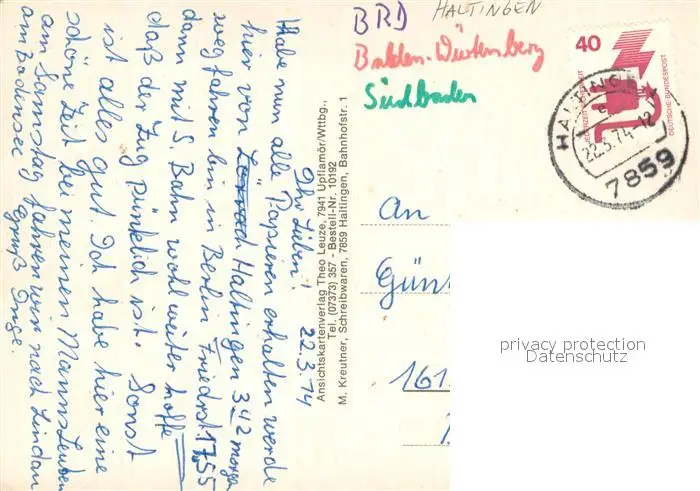 Ihr Lieben! 22.3.74
Habe nun alle Papieren erhalten werde
hier von Lörrach Haltingen 342 morgen
wegfahren bin in Berlin Friedrst. 17,55
dann mit S. Bahn wohl weiter hoffe
daß der Zug Pünklich ist. Sonst
ist alles gut. Ich habe hier eine
schöne Zeit bei meinen Manns Leuten
am Samstag fahren wir nach Lindau
am Bodensee Gruß Inge.
Ansichtskartenverlag Theo Leuze, 7941 Upflamör/Wttbg.,
Tel. (07373) 357 - Bestell-Nr. 10192
M. Kreutner, Schreibwaren, 7859 Haltingen, Bahnhofstr. 1
BRD
HALTINGEN
Baden-Würtemberg
Südbaden
40
JEDERZEIT SICHERHEIT
DEUTSCHE BUNDESPOST
HALTINGEN
22.3.74-12
7859
An
Günt
161
privacy protection
Datenschutz